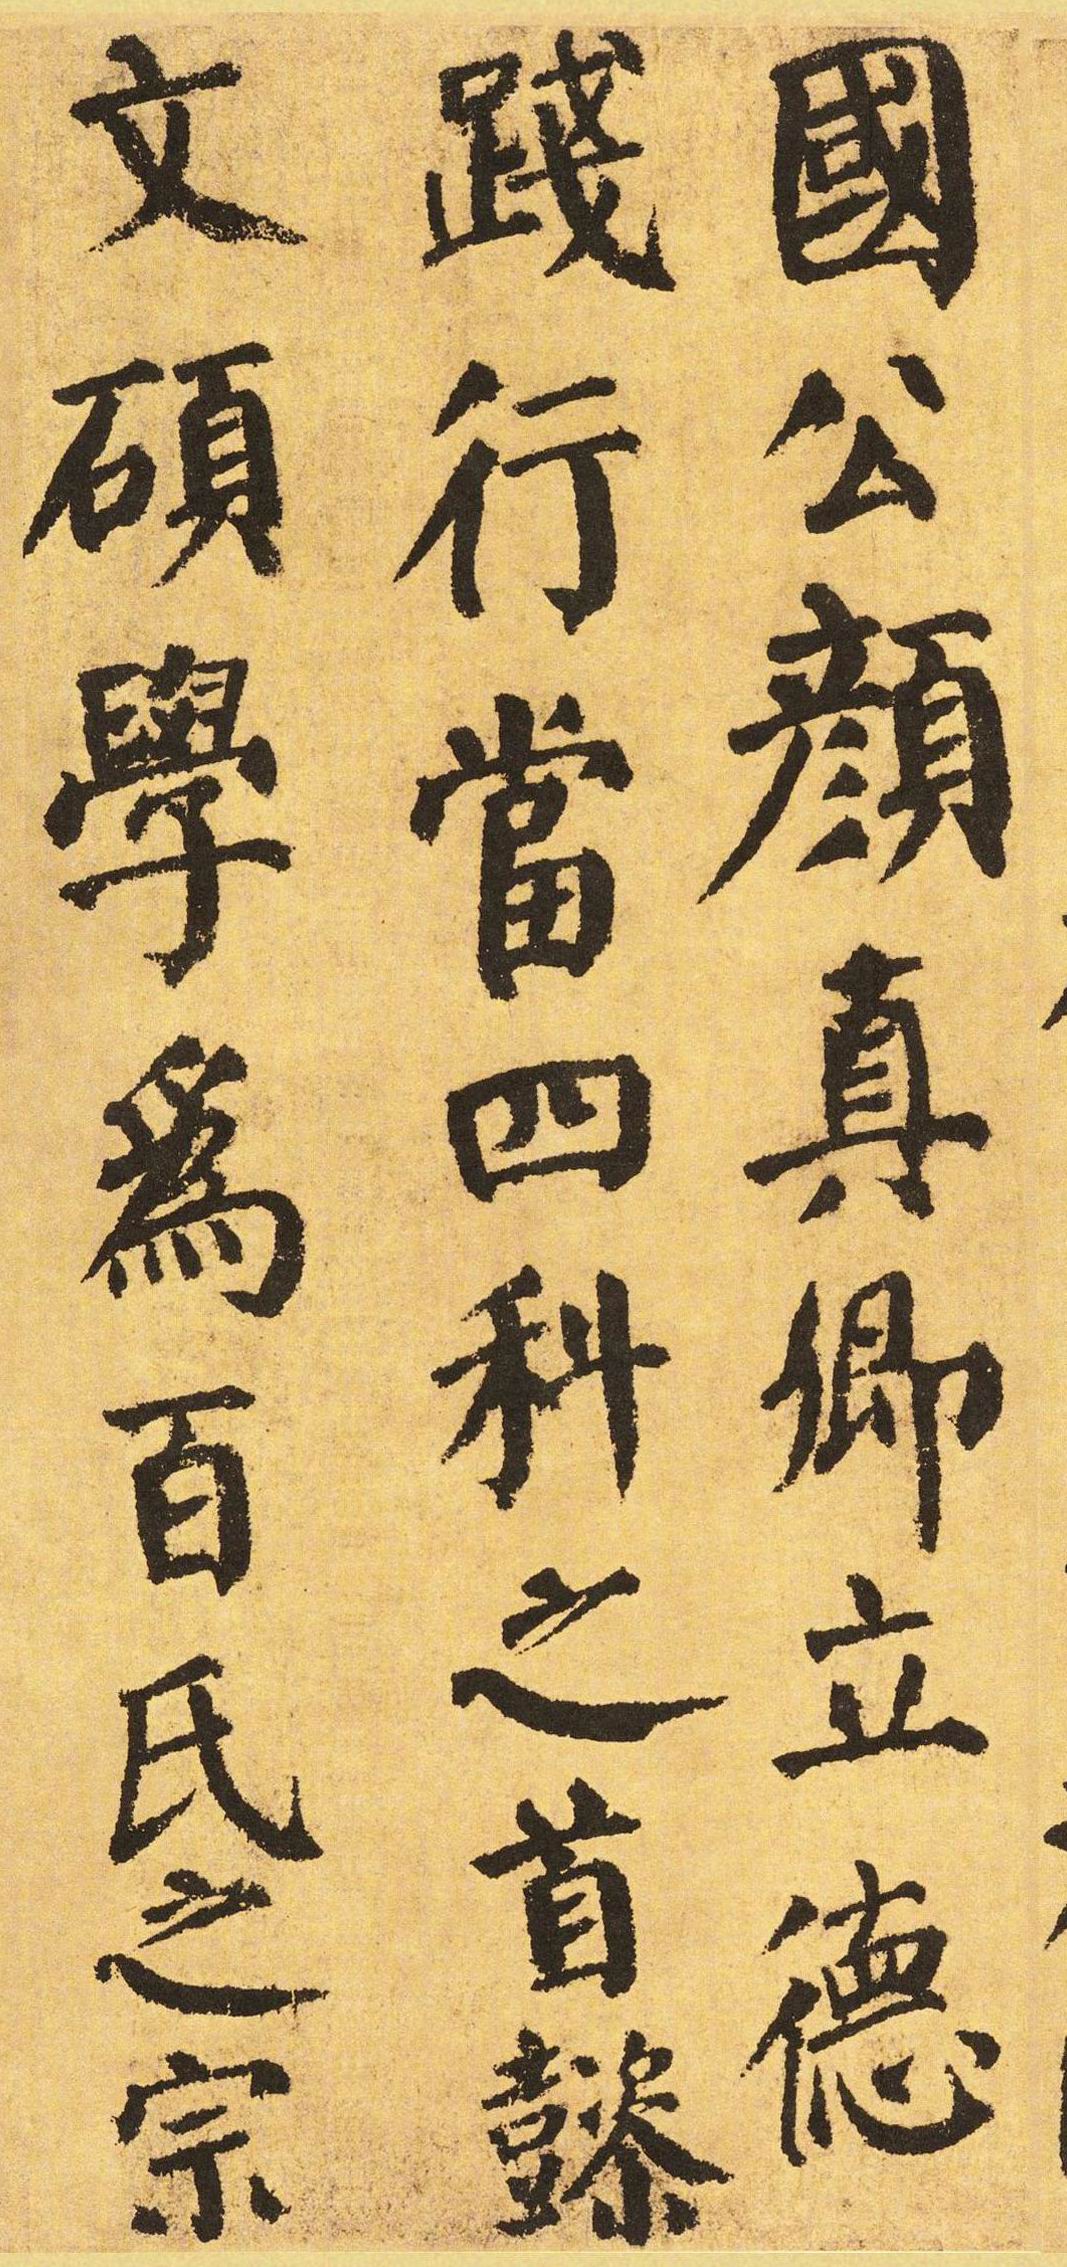 國公顔真卿立德
踐行當四科之首懿
文碩學爲百氏之宗